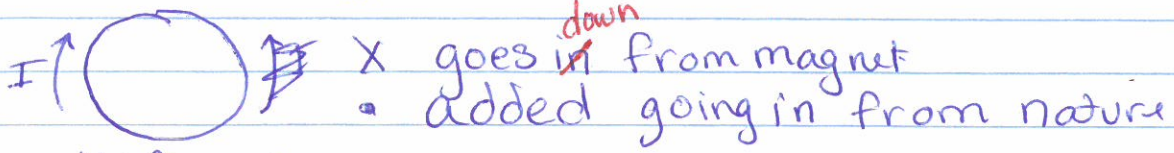 down
I X goes in from magnet
• added going in from nature